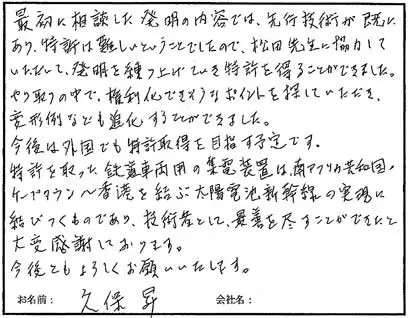 最初に相談した発明の内容では、先行技術が既に
あり、特許は難しいということでしたので、松田先生に協力して
いただいて、発明を練り上げていき特許を得ることができました。
やり取りの中で、権利化できそうなポイントを探していただき、
変形例なども進化することができました。
今後は外国でも特許取得を目指す予定です。
特許を取った鉄道車両用の集電装置は、南アフリカ共和国・
ケープタウン〜香港を結ぶ太陽電池新幹線の実現に
結びつくものであり、技術者として、最善を尽すことができたと
大変感謝しております。
今後ともよろしくお願いいたします。
お名前： 久保 昇 会社名：